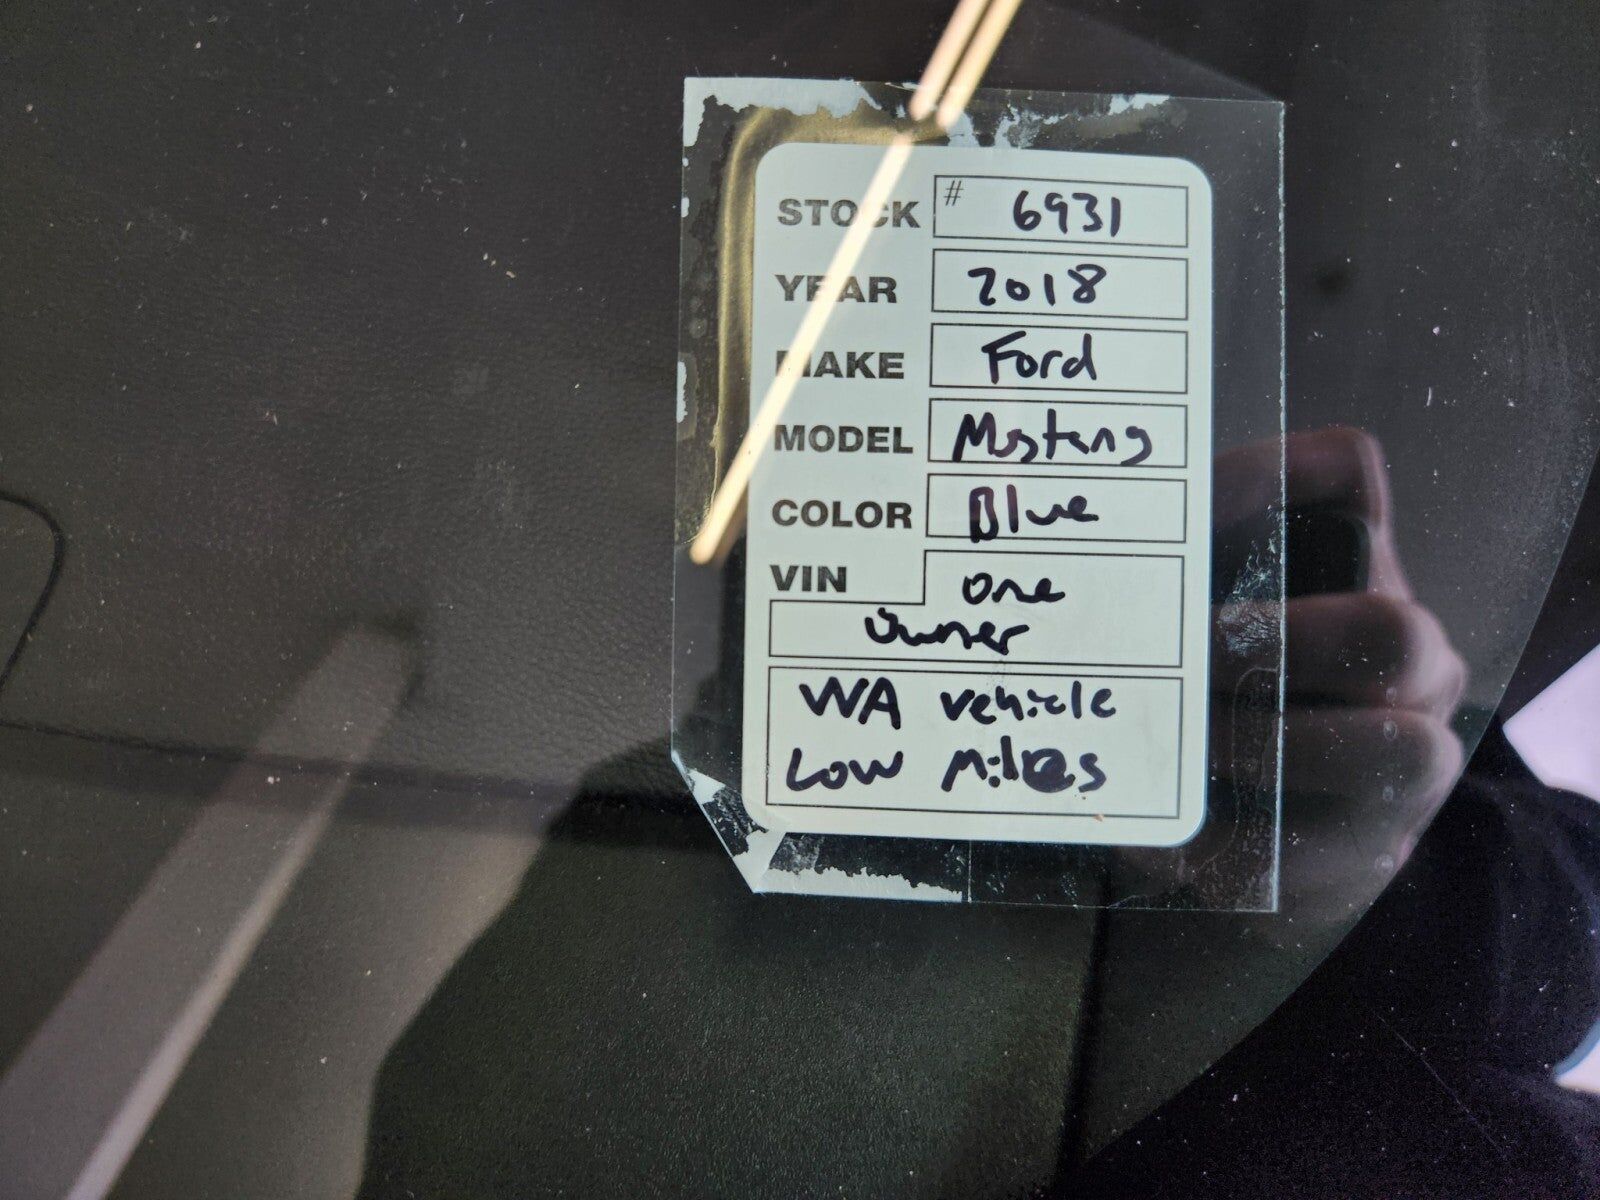 STOCK # 6931
YEAR 2018
MAKE Ford
MODEL Mustang
COLOR Blue
VIN one
owner
WA vehicle
Low Miles